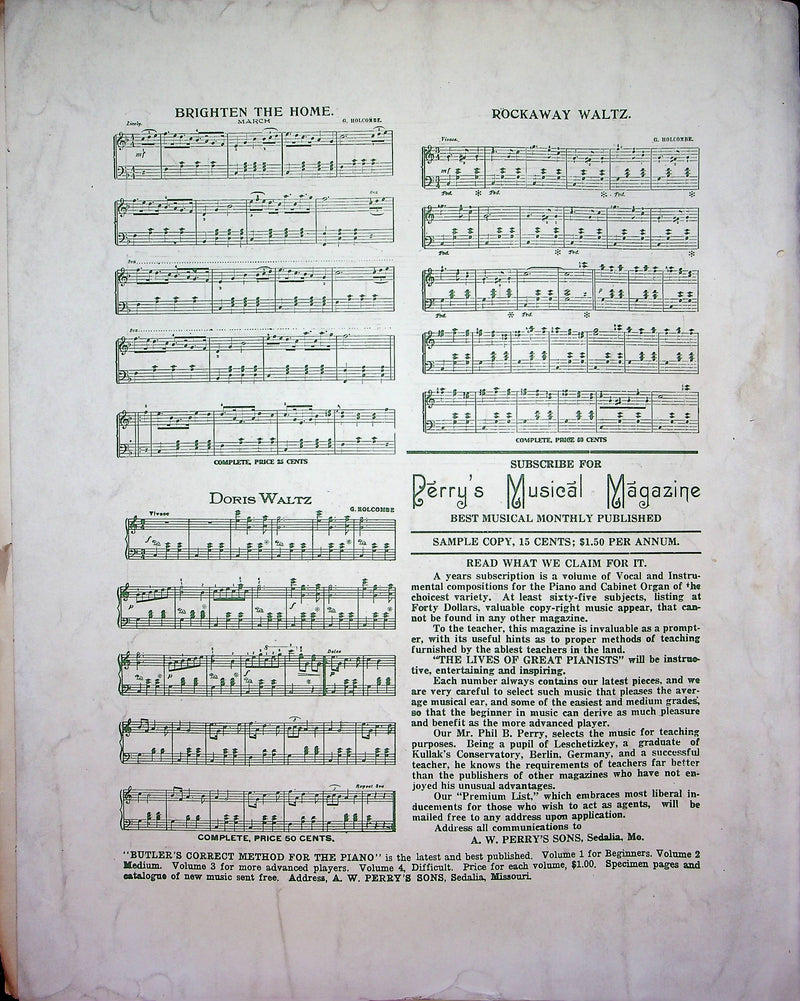 BRIGHTEN THE HOME.
MARCH
Lively.
G. HOLCOMBE.
mf
8va
8va
8va
COMPLETE, PRICE 25 CENTS
DORIS WALTZ
Vivace
G. HOLCOMBE
f
p
f
p
p
Dolce
Repeat 8va
COMPLETE, PRICE 50 CENTS.
ROCKAWAY WALTZ.
Vivace.
G. HOLCOMBE.
mf
Ped. Ped. Ped.
Ped. Ped.
Ped. Ped.
COMPLETE, PRICE 50 CENTS
SUBSCRIBE FOR
Perry's Musical Magazine
BEST MUSICAL MONTHLY PUBLISHED
SAMPLE COPY, 15 CENTS; $1.50 PER ANNUM.
READ WHAT WE CLAIM FOR IT.
A years subscription is a volume of Vocal and Instru-
mental compositions for the Piano and Cabinet Organ of the
choicest variety. At least sixty-five subjects, listing at
Forty Dollars, valuable copy-right music appear, that can-
not be found in any other magazine.
To the teacher, this magazine is invaluable as a prompt-
er, with its useful hints as to proper methods of teaching
furnished by the ablest teachers in the land.
"THE LIVES OF GREAT PIANISTS" will be instruc-
tive, entertaining and inspiring.
Each number always contains our latest pieces, and we
are very careful to select such music that pleases the aver-
age musical ear, and some of the easiest and medium grades,
so that the beginner in music can derive as much pleasure
and benefit as the more advanced player.
Our Mr. Phil B. Perry, selects the music for teaching
purposes. Being a pupil of Leschetizkey, a graduate of
Kullak's Conservatory, Berlin, Germany, and a successful
teacher, he knows the requirements of teachers far better
than the publishers of other magazines who have not en-
joyed his unusual advantages.
Our "Premium List," which embraces most liberal in-
ducements for those who wish to act as agents, will be
mailed free to any address upon application.
Address all communications to
A. W. PERRY'S SONS, Sedalia, Mo.
"BUTLER'S CORRECT METHOD FOR THE PIANO" is the latest and best published. Volume 1 for Beginners. Volume 2
Medium. Volume 3 for more advanced players. Volume 4, Difficult. Price for each volume, $1.00. Specimen pages and
catalogue of new music sent free. Address, A. W. PERRY'S SONS, Sedalia, Missouri.